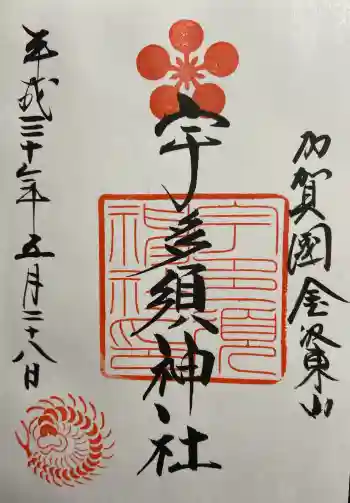 加賀國金澤東山
宇多須神社
平成三十年五月二十八日
宇多須
神社印